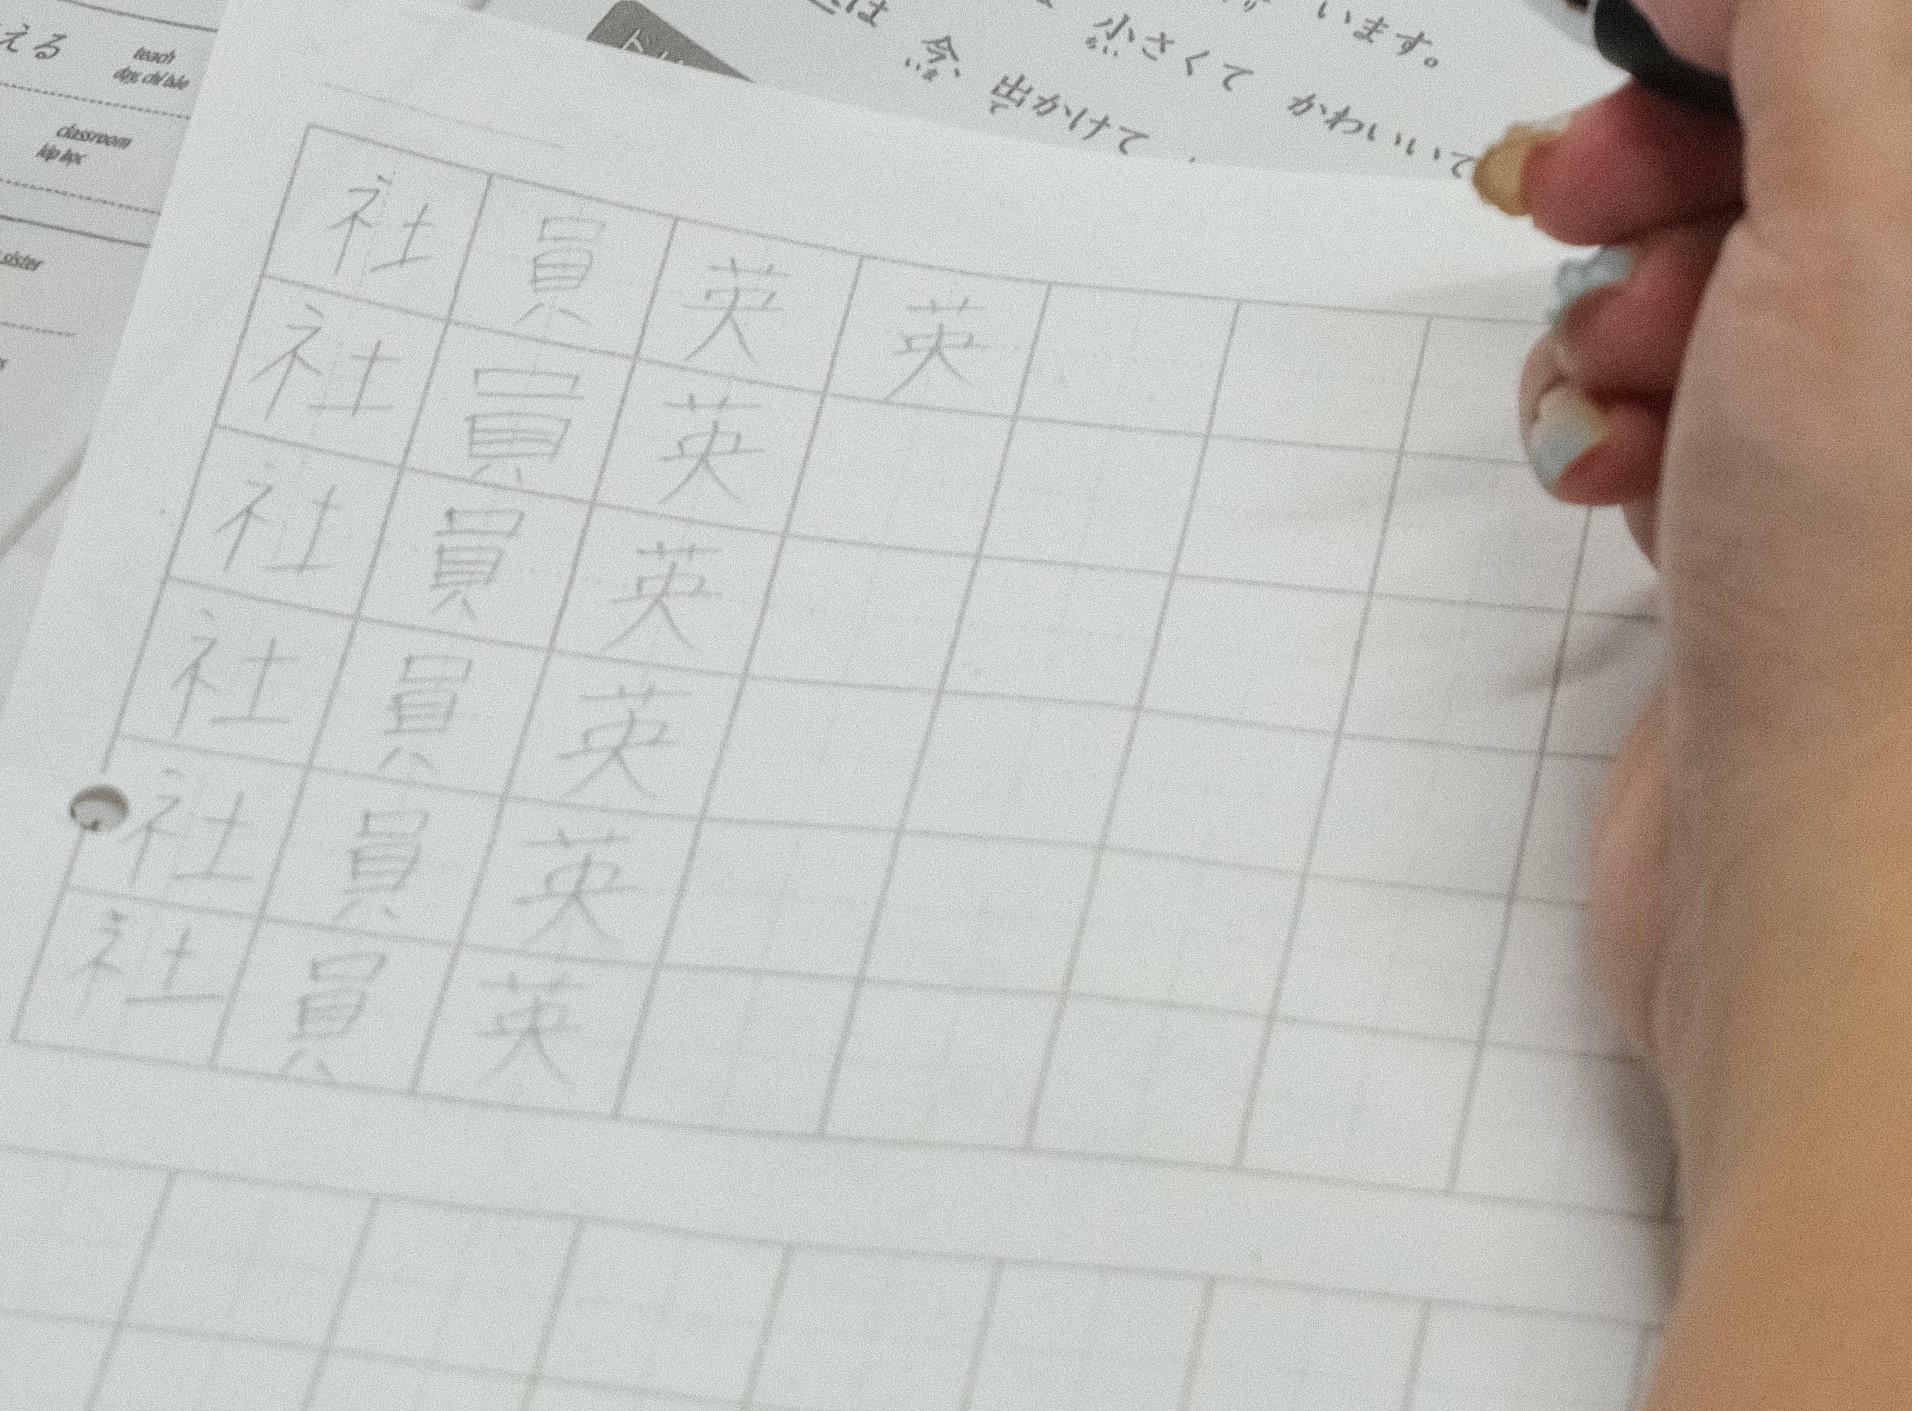 える
teach
dạy, chỉ bảo
classroom
lớp học
sister
います。
は 今 小さくて かわいいで
いま ちい
出かけて
で
社 員 英 英
社 員 英
社 員 英
社 員 英
社 員 英
社 員 英